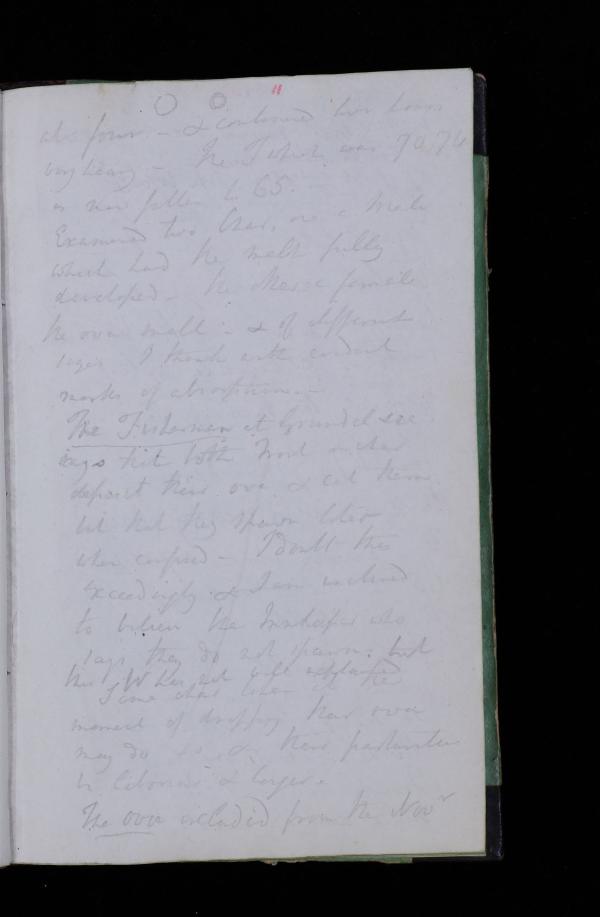 11
at four — & continued two hours
very heavy — The T which was 70, 74
is now fallen to 65. —
Examined two Char, one a male
which had the melt fully
developed — the other a female
the ova small — & of different
sizes I think with evident
marks of absorption. —
The Fisherman at Grundel see
says that both Trout & char
deposit their ova & eat them
but that they spawn later
when confined — I doubt this
exceedingly & I am inclined
to believe the Innkeeper who
says they do not spawn; but
this
Some char when at the
moment of dropping their ova
may do so &
be laborious & longer.
The ova excluded from the Novr